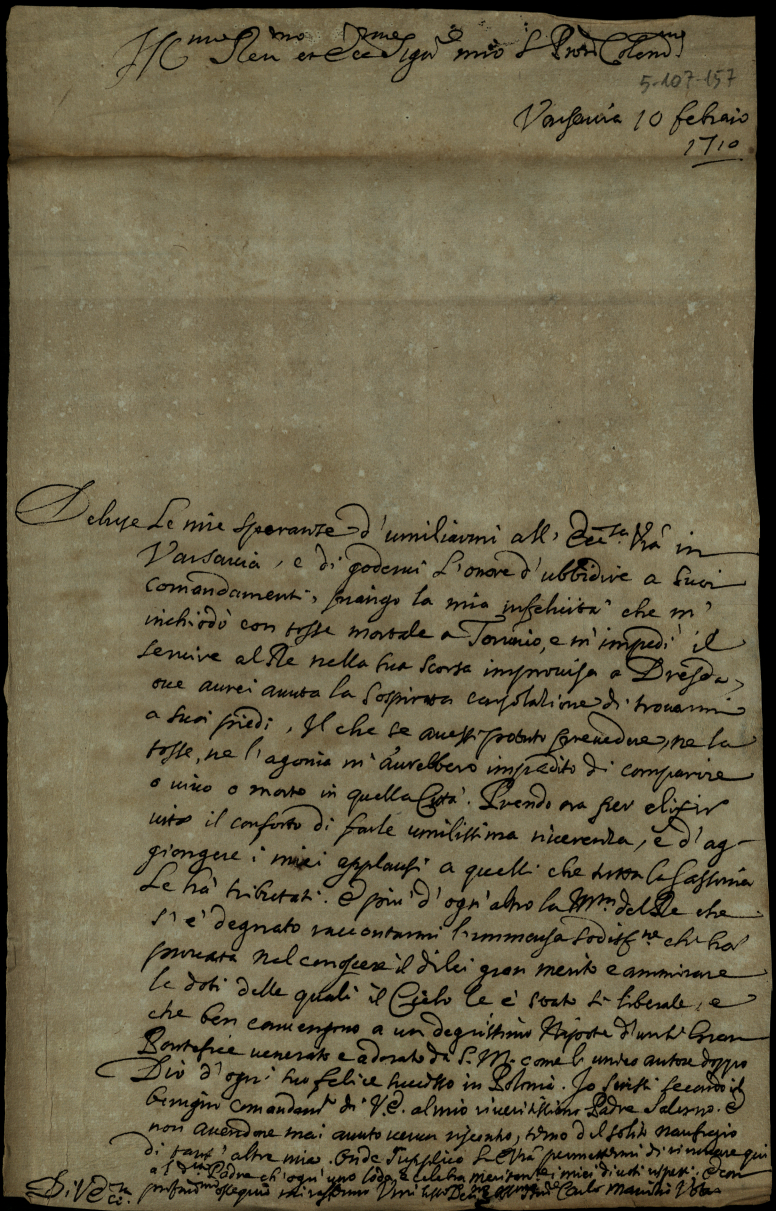 Ill.mo Rev.mo et Ecc.mo Sig.r mio e Pron Colend.mo
5-107-157
Varsavia 10 febraio
1710
Deluse le mie speranze d'umiliarmi all' Ecc.za Vrã in
Varsavia, e di godermi l'onore d'ubbidire a suoi
comandamenti, piango la mia infelicità che m'
inchiodò con tosse mortale a e m'impedì il
servire al Re nella sua scorsa improvisa a Dresda,
oue aurei auuta la sospirata consolatione di trouarmi
a suoi piedi, Il che se auessi potuto preuedere, ne la
tosse, ne l'agonia m'aurebbero impedito di comparire
o uiuo o morto in quella Città. Prendo ora per elixir
uitæ il conforto di farle umilissima riuerenza, e d'ag-
giongere i miei applausi a quelli che tutta la Sassonia
le hà tributati. E più d'ogn'altro la M.tà del Re che
s'è degnato raccontarmi l'immensa sodisf.ne che hà
prouata nel conoscere il di lei gran merito e ammirare
le doti delle quali il Cielo le è stato sì liberale, e
che ben conuengono a un degnissimo Nipote d'un sì Gran
Pontefice uenerato e adorato da S. M. come l'unico autore doppo
Dio d'ogni suo felice successo in Polonia. Io scrissi secondo il
benigno comandam.to di V.E. al mio riueritissimo Padre Salerno. E
non auendone mai auuto uerun riscontro, temo del solito naufragio
di tant'altre mie. Onde supplico l'E. Vrã permettermi di rinouare qui
al d.to Padre ch'ogn'uno loda e celebra i miei diuoti rispetti. E con
profond.mo ossequio mi rassegno
Di V. Ecc.za Carlo Maurizio Vota